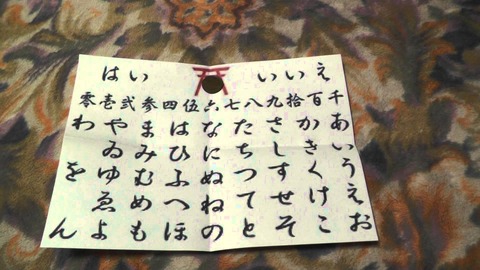 はい いいえ
零壱弐参四伍六七八九拾百千
あいうえお
かきくけこ
さしすせそ
たちつてと
なにぬねの
はひふへほ
まみむめも
やゐゆゑよ
わをん